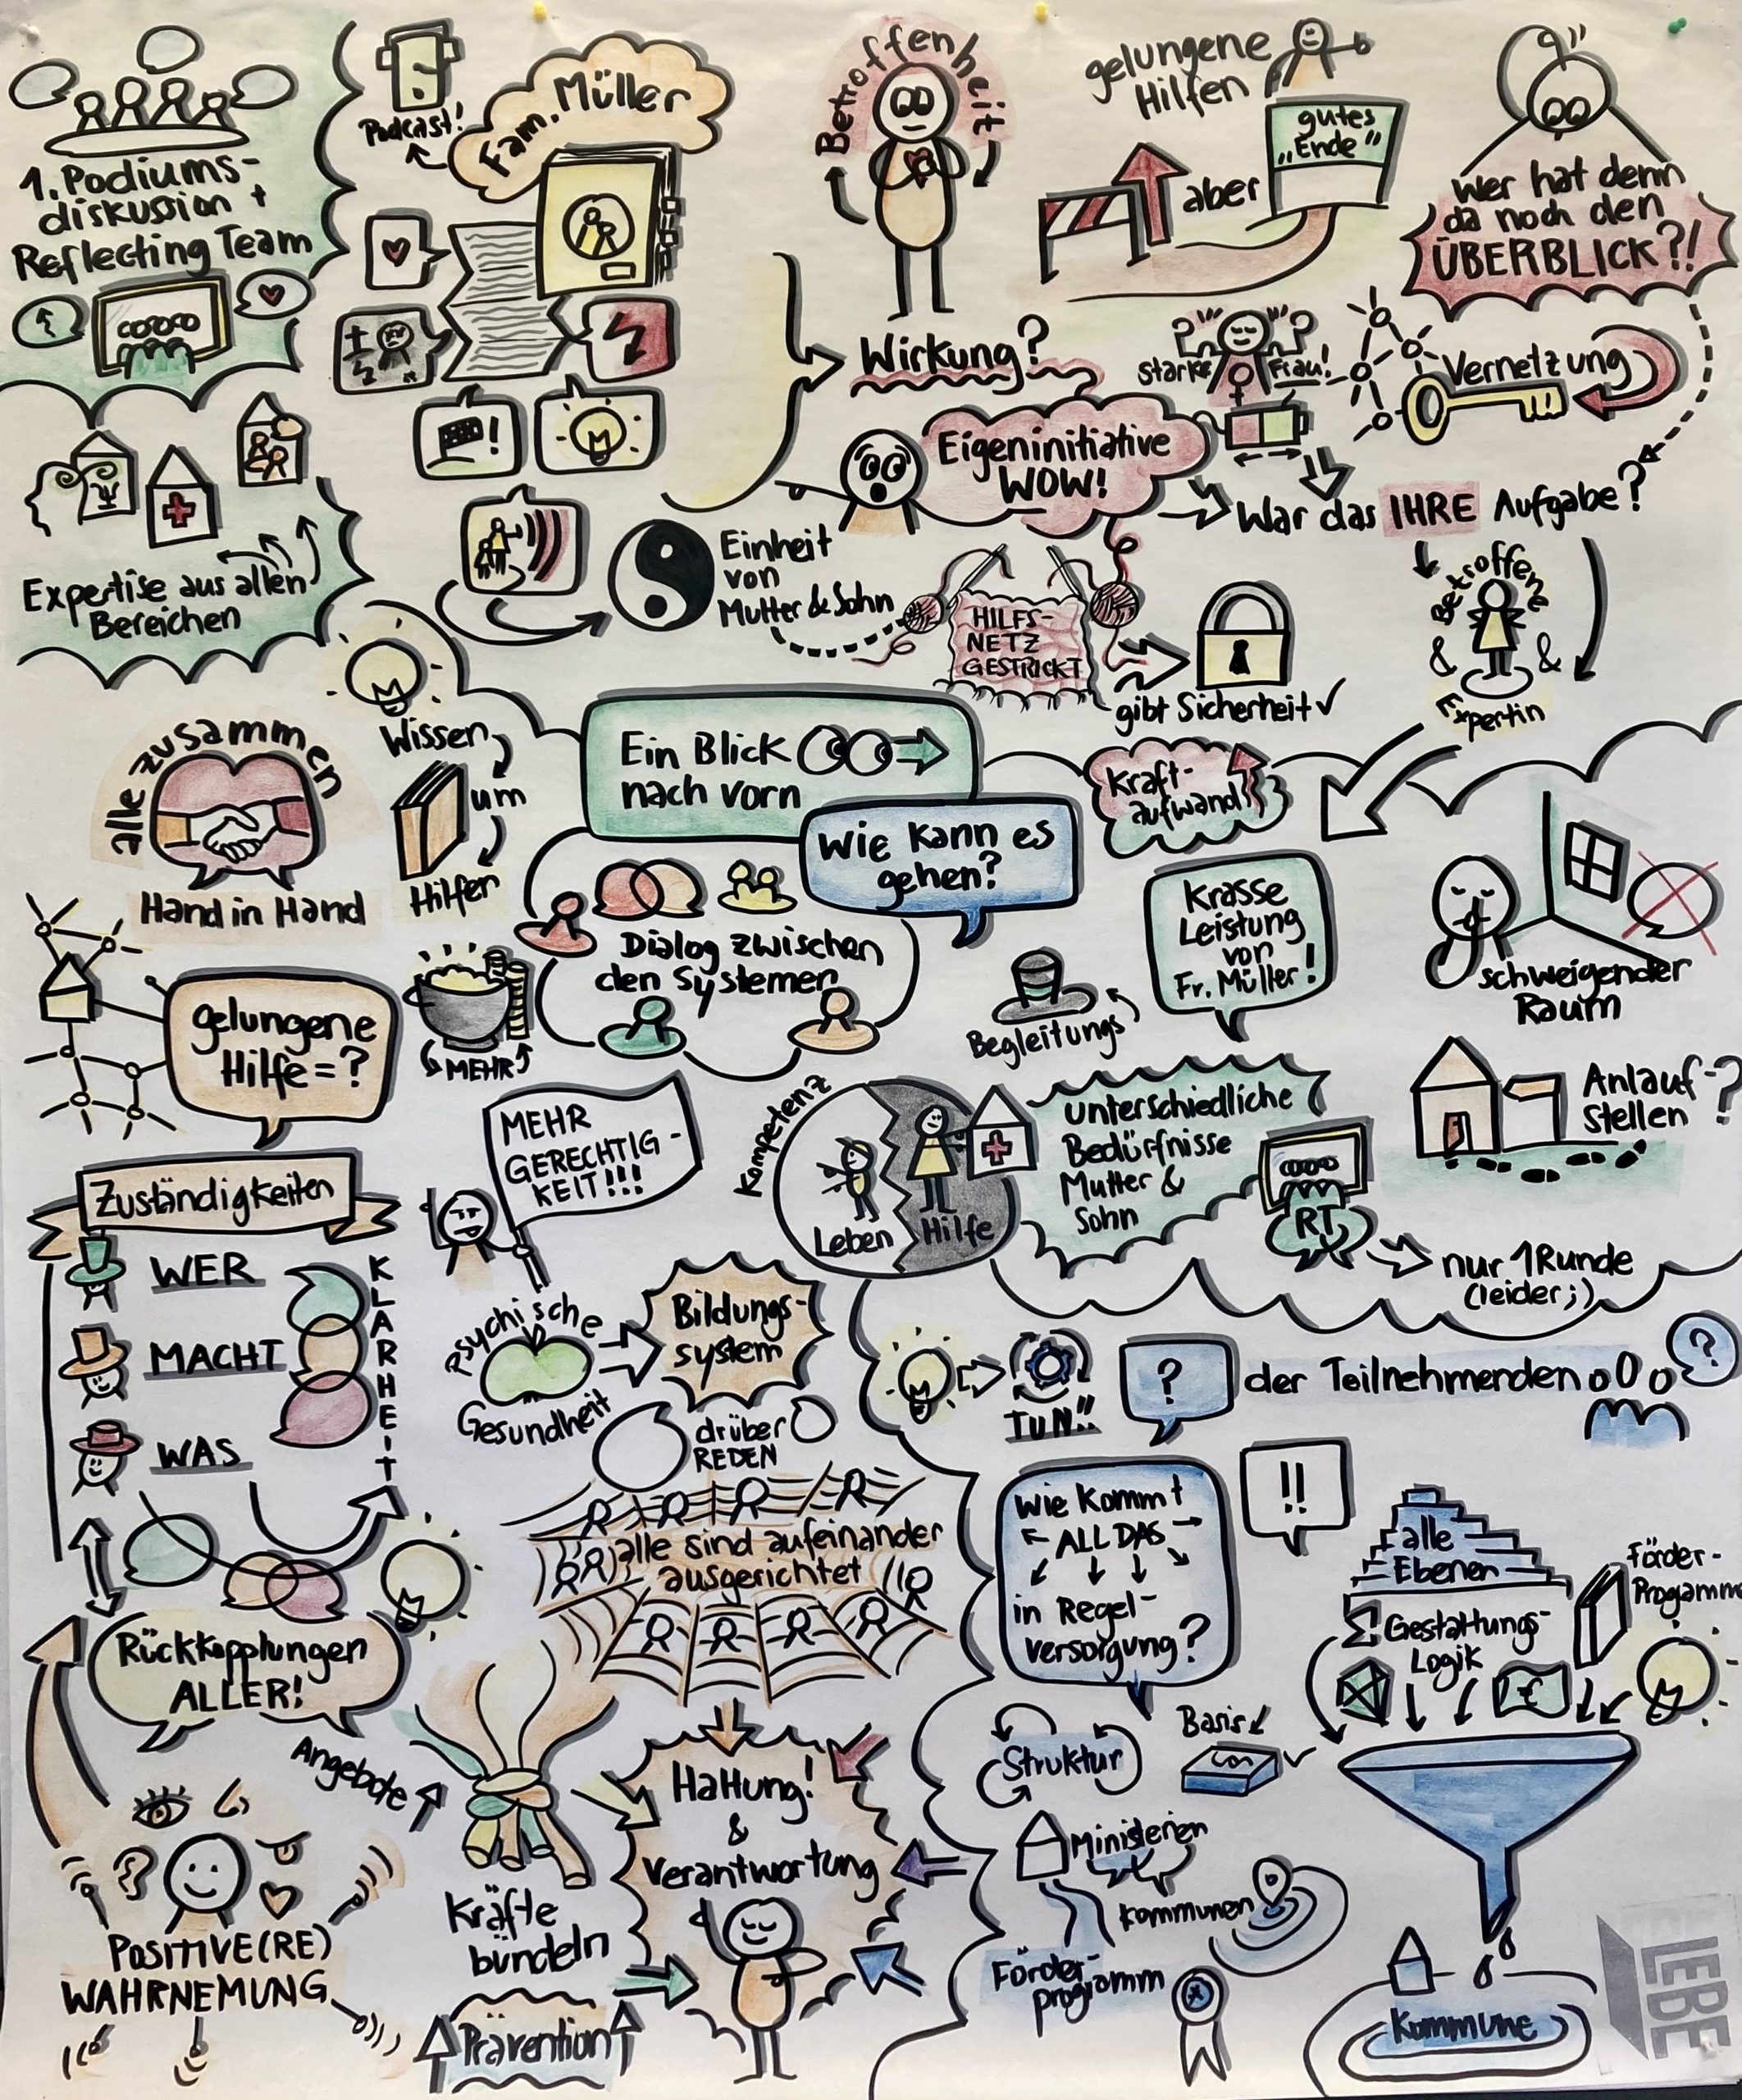 1. Podiums-
diskussion +
Reflecting Team
Podcast!
Fam. Müller
Betroffenheit
gelungene
Hilfen
gutes
„Ende"
aber
wer hat denn
da noch den
ÜBERBLICK?!
Expertise aus allen
Bereichen
!
Wirkung?
starke Frau!
Vernetzung
Eigeninitiative
WOW!
War das IHRE Aufgabe?
Einheit
von
Mutter & Sohn
HILFS-
NETZ
GESTRICKT
gibt Sicherheit ✓
Betroffene
& &
Expertin
alle zusammen
Hand in Hand
Wissen
um
Hilfen
MEHR
Ein Blick
nach vorn
Wie kann es
gehen?
Dialog zwischen
den Systemen
Kraft-
aufwand
Krasse
Leistung
von
Fr. Müller!
Begleitungs
schweigender
Raum
Kompetenz
Leben
Hilfe
unterschiedliche
Bedürfnisse
Mutter &
Sohn
RT
nur 1 Runde
(leider ;)
Anlauf-
stellen ?
gelungene
Hilfe = ?
Zuständigkeiten
WER
MACHT
WAS
KLARHEIT
MEHR
GERECHTIG-
KEIT!!!
psychische
Gesundheit
Bildungs-
system
drüber
REDEN
alle sind aufeinander
ausgerichtet
Rückkopplungen
ALLER!
Angebote
Kräfte
bündeln
Haltung!
&
Verantwortung
POSITIVE(RE)
WAHRNEMUNG
Prävention
TUN!!
?
der Teilnehmenden
?
wie kommt
ALL DAS
in Regel-
versorgung?
!!
alle
Ebenen
Förder-
Progamme
Σ Gestattungs-
Logik
€
Struktur
Basis
✓
Ministerien
Kommunen
Förder-
programm
Kommune
LEBE